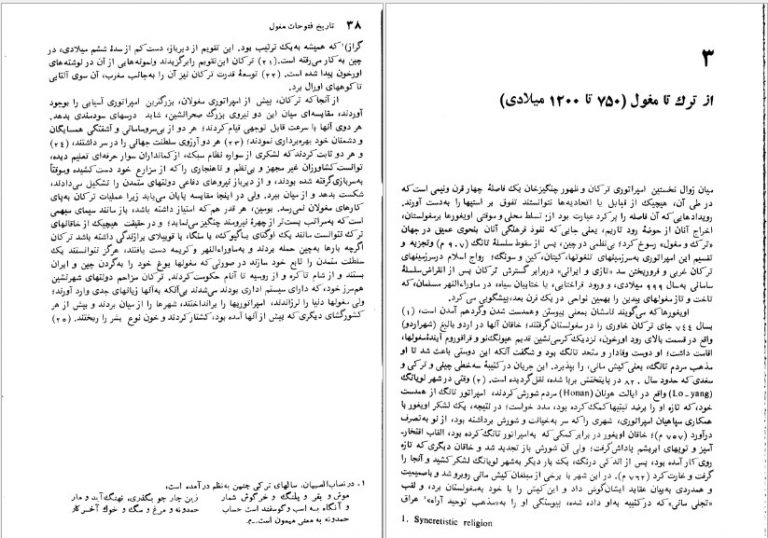 ۳۸ تاریخ فتوحات مغول
گراز)۱ که همیشه به‌یک ترتیب بود. این تقویم از دیرباز، دست‌کم از سدهٔ ششم میلادی، در
چین به کار می‌رفته است.(۲۱) ترکان این‌تقویم رابرگزیدند ونمونه‌هایی از آن در نوشته‌های
اورخون پیدا شده است. (۲۲) توسعهٔ قدرت ترکان نیز آن را به‌جالب مغرب، آن سوی آلتایی
تا کوههای اورال برد.
از آنجا که ترکان، پیش از امپراتوری مغولان، بزرگترین امپراتوری آسیایی را بوجود
آوردند، مقایسه‌ای میان این دو نیروی بزرگ صحرانشین، شاید درسهای سودمندی بدهد.
هر دوی آنها با سرعت قابل توجهی قیام کردند؛ هر دو از بی‌سروسامانی و آشفتگی همسایگان
و دشمنان خود بهره‌برداری نمودند؛ (۲۳) هر دو آرزوی سلطنت جهانی را در سر داشتند، (۲۴)
و هر دو ثابت کردند که لشکری از سواره نظام سبک، از کمانداران سوار حرفه‌ای تعلیم دیده،
توانست کشاورزان غیر مجهز و بی‌نظم و ناهنجاری را که از مزارع خود دست کشیده وموقتاً
به‌سربازی گرفته شده بودند، و از دیرباز نیروهای دفاعی دولتهای متمدن را تشکیل می‌دادند،
شکست بدهد و از میان ببرد. ولی در اینجا مقایسه پایان می‌یابد زیرا عملیات ترکان به‌پای
کارهای مغولان نمی‌رسد. بومین، هر قدر هم که امتیاز داشته باشد، باز مانند سیمای مبهمی
است که به‌مراتب پست‌تر از چهرهٔ نیرومند چنگیز می‌نماید؛ و در حقیقت هیچیک از خاقانهای
ترک نتوانست مانند یک اوگتای یاگیوک یا منگکا یا قوبیلای برازندگی داشته باشد ترکان
اگرچه بارها به‌چین حمله بردند و به‌ماوراءالنهر و کریمه دست یافتند، هرگز نتوانستند یک
سلطنت متمدن را تابع خود سازند در صورتی که مغولها یوغ خود را به‌گردن چین و ایران
بستند و از شام تا کره و از روسیه تا آنام حکومت کردند. ترکان مزاحم دولتهای شهرنشین
هم‌مرز خود، که دارای سیستم اداری بودند می‌شدند بی‌آنکه به‌آنها زیانهای جدی وارد آورند؛
ولی مغولها دنیا را لرزاندند، امپراتوریها را برانداختند، شهرها را از میان بردند و بیش از هر
کشورگشای دیگری که پیش از آنها آمده بود، کشتار کردند و خون نوع بشر را ریختند. (۲۵)
۱. در نصاب‌الصبیان، سالهای ترکی چنین به‌نظم درآمده است،
موش و بقر و پلنگ و خرگوش شمار زین چار چو بگذری، نهنگ آید و مار
و آنگاه به اسب و گوسفند است حساب حمدونه و مرغ و سگ و خوک آخر کار
حمدونه به معنی میمون است.ـ م.
۳
از ترک تا مغول (۷۵۰ تا ۱۲۰۰ میلادی)
میان زوال نخستین امپراتوری ترکان و ظهور چنگیزخان یک فاصلهٔ چهار قرن ونیمی است که
در طی آن، هیچیک از قبایل یا اتحادیه‌ها نتوانستند تفوق بر استپها را به‌دست آورند.
رویدادهایی که آن فاصله را پر کرد عبارت بود از: تسلط محلی و موقتی اویغورها برمغولستان،
اخراج آنان از حوضهٔ رود تاریم، یعنی جایی که نفوذ فرهنگی آنان بنحوی عمیق در جهان
«ترک و مغول» رسوخ کرد؛ بی‌نظمی در چین، پس از سقوط سلسلهٔ تانگ (۹۰۷ م) وتجزیه و
تقسیم این امپراتوری به‌سرزمینهای تنغوتها، کیتان، کین و سونگ؛ رواج اسلام درسرزمینهای
ترکان غربی و فروریختن سد «تازی و ایرانی» دربرابر گسترش ترکان پس از انقراض سلسلهٔ
سامانی به‌سال ۹۹۹ میلادی، و ورود قراختایی، یا ختاییان سیاه، در ماوراءالنهر مسلمان، که
تاخت و تاز مغولهای بیدین را بهمین نواحی در یک قرن بعد، پیشگویی می‌کرد.
اویغورها که می‌گویند نامشان بمعنی پیوستن وهمدست شدن وگردهم آمدن است، (۱)
بسال ۷۴۴ جای ترکان خاوری را در مغولستان گرفتند؛ خاقان آنها در اردو بالیغ (شهراردو)
واقع در قسمت بالای رود اورخون، نزدیک کرسی‌نشین قدیم هیونگ‌نو و قراقوروم آیندهٔ مغولها،
اقامت داشت؛ او دوست وفادار و متحد تانگ بود و شگفت آنکه این دوستی باعث شد تا او
مذهب مردم تانگ، یعنی کیش مانی، را بپذیرد. این جریان در کتیبهٔ سه‌خطی چینی و ترکی و
سغدی که حدود سال ۸۲۰ در پایتختش برپا شده، نقل گردیده است. (۲) وقتی در شهر لویانگ
(Lo‑yang) واقع در ایالت هونان (Honan) مردم شورش کردند، امپراتور تانگ از همدست
خود، که تازه او را برضد تبتیها کمک کرده بود، مدد خواست؛ در نتیجه، یک لشکر اویغور با
همکاری سپاهیان امپراتوری، شهری را که سر به‌خیانت و شورش برداشته بود، از نو به‌تصرف
درآورد (۷۵۷ م)؛ خاقان اویغور در برابر کمکی که به‌امپراتور تانگ کرده بود، القاب افتخار‌ـ
آمیز و توپهای ابریشم پاداش گرفت؛ ولی آن شورش باز تجدید شد و خاقان دیگری که تازه
روی کار آمده بود، پس از اندکی درنگ، یک بار دیگر به‌شهر لویانگ لشکر کشید و آنجا را
گرفت و غارت کرد (۷۶۲ م). در این شهر با برخی از مبلغان کیش مانی روبرو شد و باصمیمیت
و همدردی به‌بیان عقاید ایشان‌گوش داد و این کیش را با خود به‌مغولستان برد، و لقب
«تجلی مانی» که در کتیبه به‌او داده شده، پیوستگی او را به‌مذهب توحید آراء۱ عراق
1. Syncretistic religion